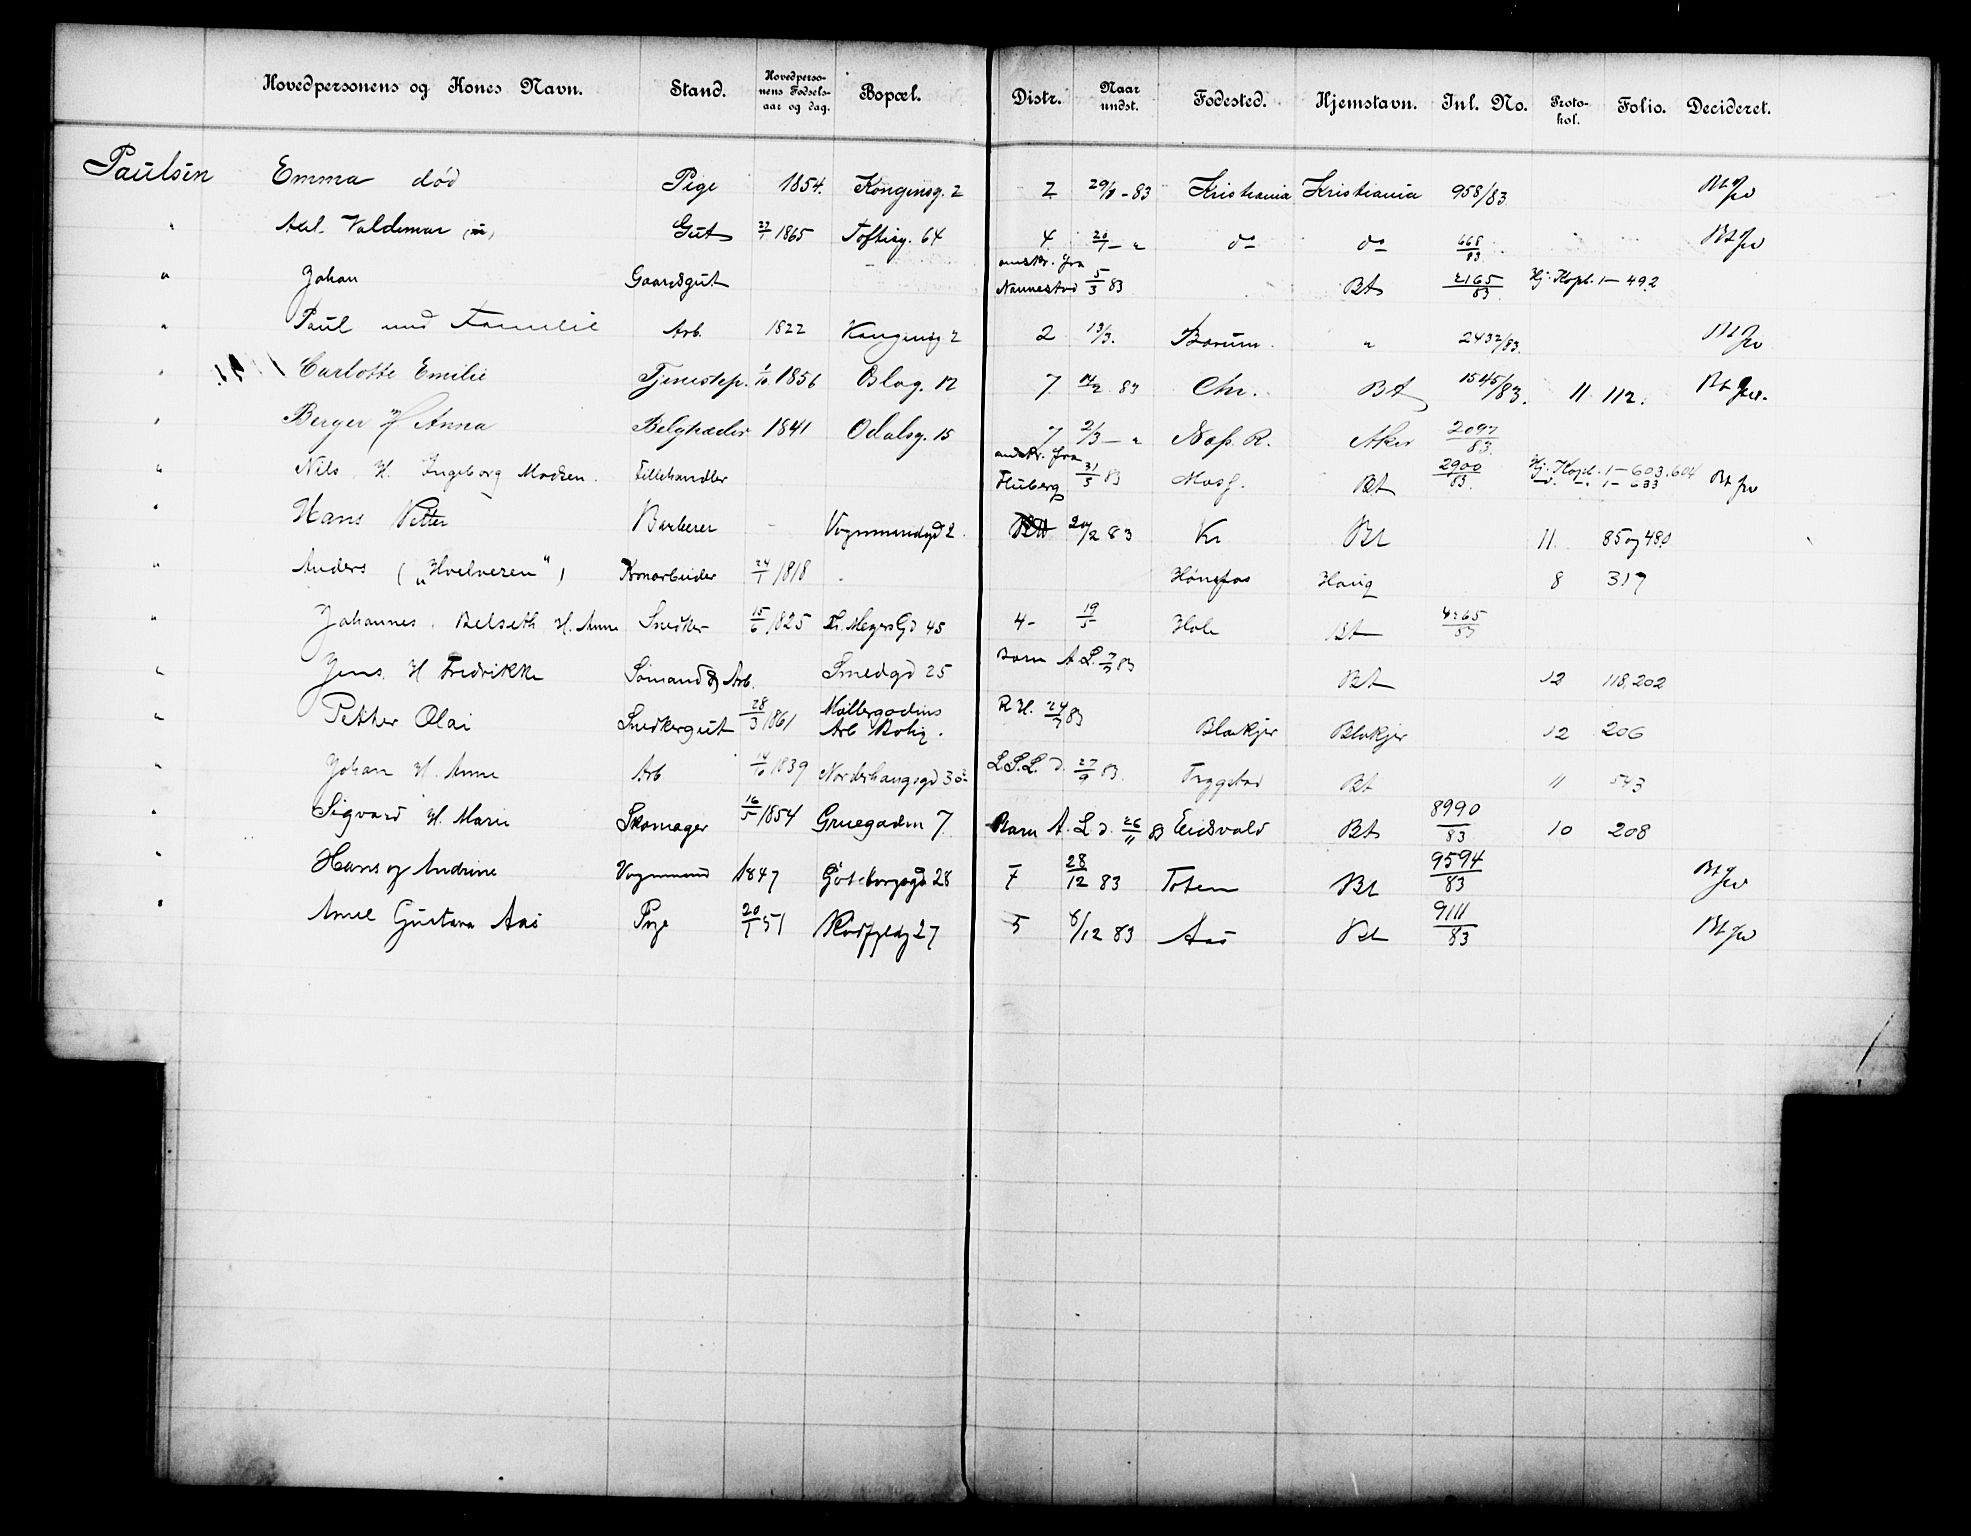 Hovedpersonens og Kones Navn. Stand. Hovedpersonens Fødselsaar og dag. Bopæl. Distr. Naar undst. Fødested. Hjemstavn. Inl. No. Protokol. Folio. Decideret.
Paulsen Emma død Pige 1854. Kongensg. 2 2 29/1 - 83 Kristiania Kristiania 958/83
" Valdemar Gut 1865 Toftesg. 64 4 20/1 - " do do 668/83
" Johan Gaardsgut Nannestad 5/3 83 Bt 2165/83 Hj. Kopb. 1 - 492
" Paul und Familie Arb. 1822 Kongensg 2 2 13/3. Bærum. " 2432/83.
" Carlotte Emilie Tjenestep. 1856 Oslog. 12 7 14/2 83 Chr. Bt 1545/83. 11 112.
" Berger H Anna 1841 Odalsg. 15 7 2/3 - " Næs. R. Aker 2097/83.
" Nils. H. Ingeborg Madsen. Fillehandler Fluberg 31/5 83 Bt 2900/83 Hj. Kopb. 1 - 603.604 1 - 633
" Hans Petter Barberer Vognmandsgd 2. 20/2 83 Kr Bt 11. 85 og 480
" Anders ( „Hvelveren“ ) 24/1 1818 Hønefos Houg 8 317
" Johannes. Belseth H. Anne Snedker 15/6 1825 Meyers Gd 45 4 - 19/5 Hole Bt 4265/83
" Jens. H Fredrikke Sømand & Arb. Smedgd 25 Barn A. L. 83 Bt 12 118,202
" Petter Olai Snedkergut 28/3 1861 Møllergadens Arb Bolig. R. H. 24/7 83 Blakjer Blakjer 12 206
" Johan H. Anne Arb 14/10 1839 Nordrehaugsgd 30 L.S.L. d. 27/9 83. Trygstad Bt 11 543
" Sigvard H. Marie Skomager 16/5 1854 Gruegaden 7 Barn A. L d. 26/11 83 Eidsvold Bt 8990/83 10 208
" Hans og Andrine Vognmand 1847 Gøteborgsgd 28 7 28/12 83 Toten Bt 9594/83
" Gustava Aas Pige 20/1 51 27 5 6/12 83 Aas Bt 9111/83